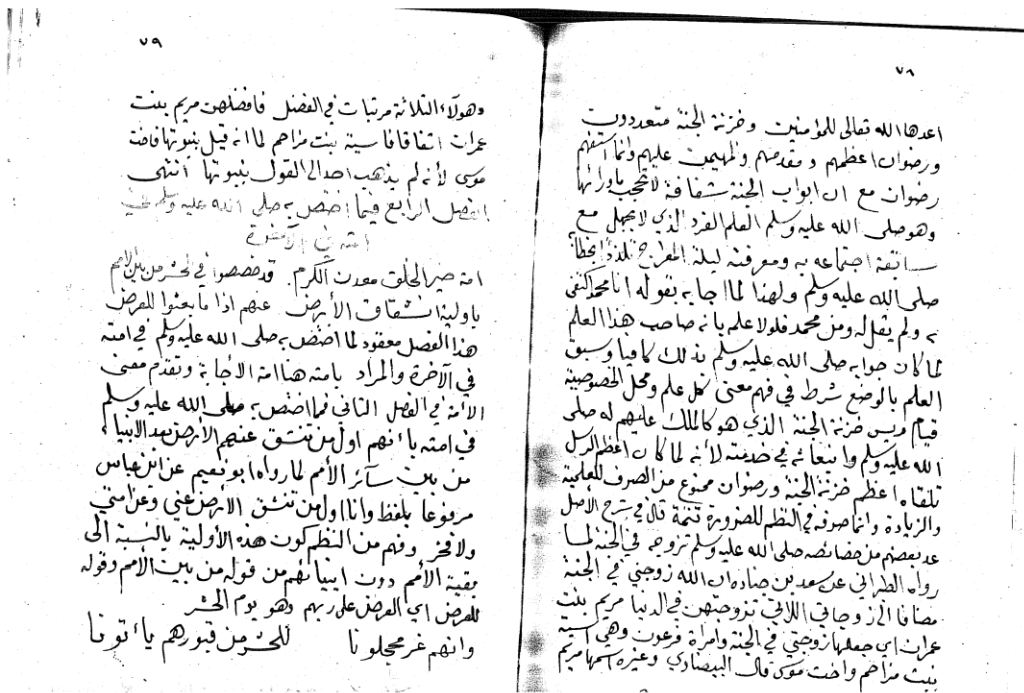 ٧٨
اعدها الله تعالى للمؤمنين وخزنة الجنة متعددون
ورضوان اعظمهم ومقدمهم والمهيمن عليهم وانما استفهم
رضوان مع ان ابواب الجنة شفافة لا تحجب ما وراءها
وهو صلى الله عليه وسلم العلم الفرد الذي لا يجهل مع
سابقة اجتماعه به ومعرفته ليلة المعراج تلذذا بخطابه
صلى الله عليه وسلم ولهذا لما اجابه بقوله انا محمد اكتفى
به ولم يقل له ومن محمد فلولا علمه بانه صاحب هذا العلم
لما كان جوابه صلى الله عليه وسلم بذلك كافيا وسبق
العلم بالوضع شرط في فهم معنى كل علم ومحل الخصوصية
قيام رئيس خزنة الجنة الذي هو كالملك عليهم له صلى
الله عليه وسلم وانبعاثه في خدمته لأنه لما كان اعظم الرسل
تلقاه اعظم خزنة الجنة ورضوان ممنوع من الصرف للعلمية
والزيادة وانما صرفه في النظم للضرورة تتمة قال في شرح الاصل
عد بعضهم من خصائصه صلى الله عليه وسلم تزوجه في الجنة لما
رواه الطبراني عن سعد بن جنادة ان الله زوجني في الجنة
مضافا الى زوجاتي اللاتي تزوجتهن في الدنيا مريم بنت
عمران اي جعلها زوجتي في الجنة وامراة فرعون وهي اسية
بنت مزاحم واخت موسى قال البيضاوي وغيره اسمها مريم
٧٩
وهولآء الثلاثة مرتبات في الفضل فافضلهن مريم بنت
عمران اتفاقا فاسية بنت مزاحم لما انه قيل بنبوتها فاخت
موسى لأنه لم يذهب احد الى القول بنبوتها انتهى
الفصل الرابع فيما اختص به صلى الله عليه وسلم في
امته في الآخرة
امة خير الخلق معدن الكرم قد خصصوا في الحشر من بين الامم
باولية انشقاق الأرض عنهم اذا ما بعثوا للعرض
هذا الفصل معقود لما اختص به صلى الله عليه وسلم في امته
في الآخرة والمراد بامته هنا امة الأجابة وتقدم معنى
الامة في الفصل الثاني فما اختص به صلى الله عليه وسلم
في امته بانهم اول من تنشق عنهم الأرض بعد الانبياء
من بين سآئر الأمم لما رواه ابو نعيم عن ابن عباس
مرفوعا بلفظ وانا اول من تنشق الارض عني وعن امتي
ولا فخر وفهم من النظم كون هذه الأولية بالنسبة الى
بقية الأمم دون انبيائهم من قوله من بين الأمم وقوله
للعرض اي العرض على ربهم وهو يوم الحشر
وانهم غر محجلونا للحشر من قبورهم ياتونا